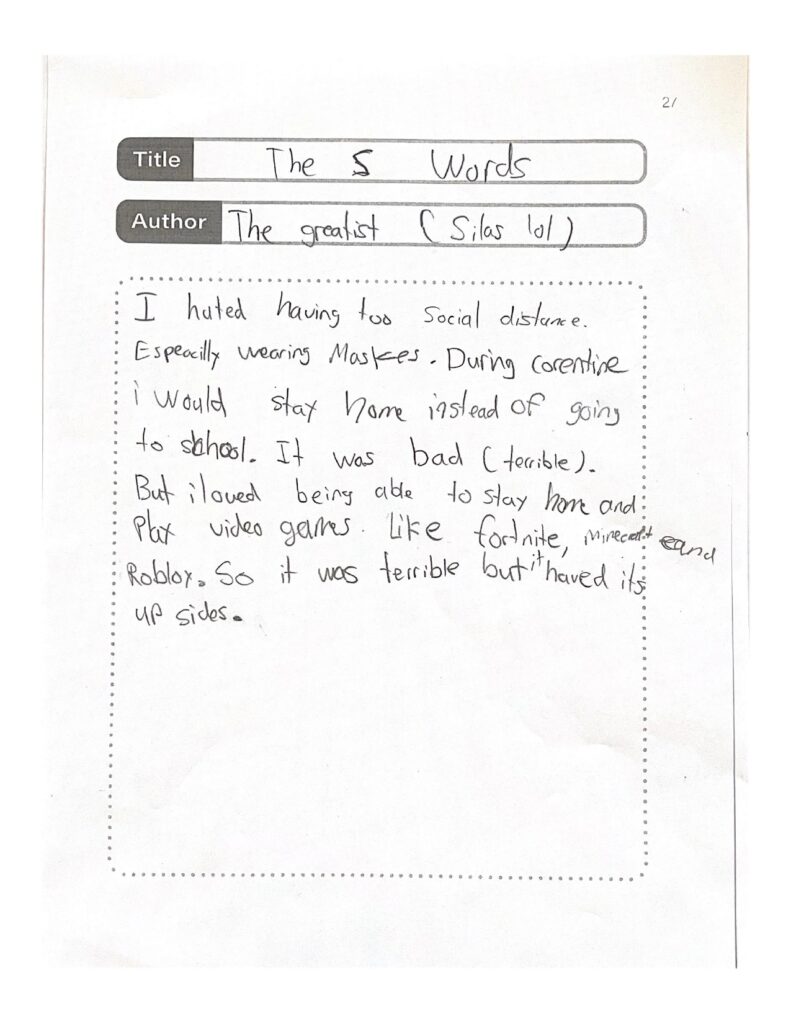 21
Title The 5 Words
Author The greatist (Silas lol)
I hated having too Social distance.
Espeacilly wearing Maskes. During corentine
i would stay home instead of going
to school. It was bad (terrible).
But i loved being able to stay home and
Play video games. Like fortnite, Minecraft and
Roblox. So it was terrible but it haved its
up sides.